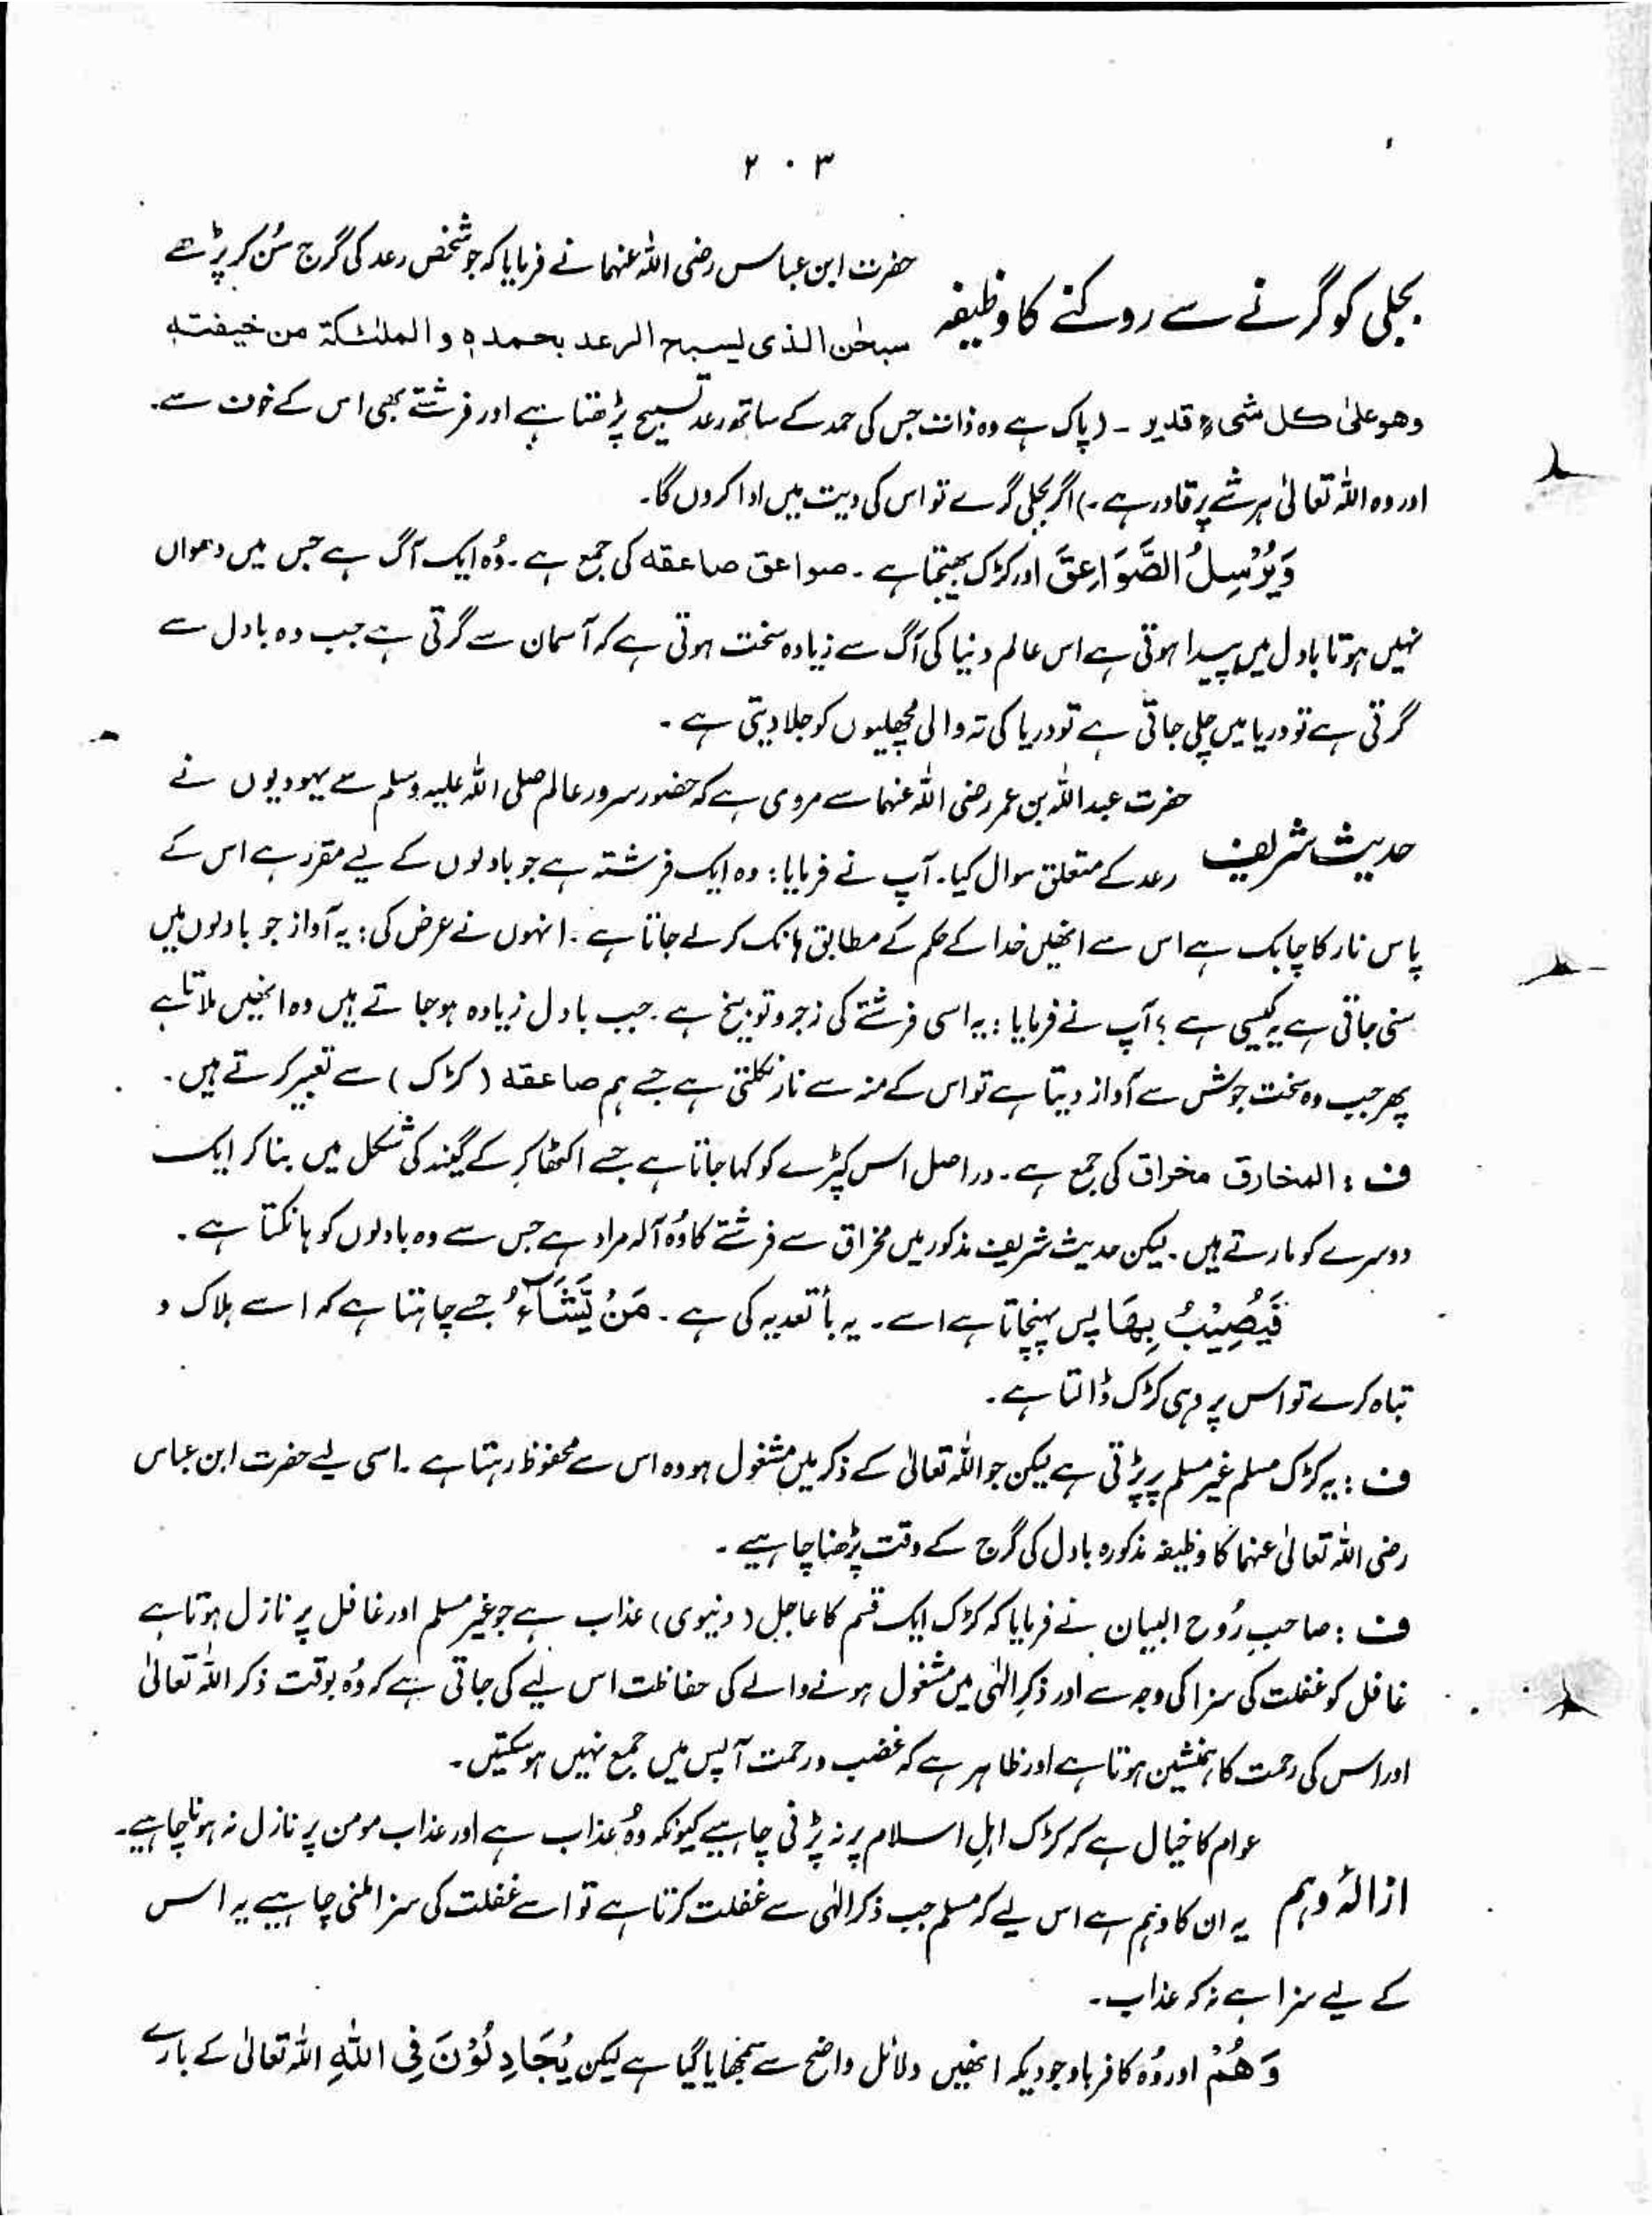 ۲۰۳
بجلی کو گرنے سے روکنے کا وظیفہ
حضرت ابن عباس رضی اللہ عنہما نے فرمایا کہ جو شخص رعد کی گرج سُن کر پڑھے
سبحٰن الذی یسبح الرعد بحمدہٖ والملٰئکۃ من خیفتہٖ
وھو علیٰ کل شیءٍ قدیر ۔ (پاک ہے وہ ذات جس کی حمد کے ساتھ رعد تسبیح پڑھتا ہے اور فرشتے بھی اس کے خوف سے۔
اور وہ اللہ تعالیٰ ہر شے پر قادر ہے۔) اگر بجلی گرے تو اس کی دیت میں ادا کروں گا۔
وَیُرْسِلُ الصَّوَاعِقَ اور کڑک بھیجتا ہے۔ صواعق صاعقہ کی جمع ہے۔ وُہ ایک آگ ہے جس میں دھواں
نہیں ہوتا بادل میں پیدا ہوتی ہے اس عالم دنیا کی آگ سے زیادہ سخت ہوتی ہے کہ آسمان سے گرتی ہے جب وہ بادل سے
گرتی ہے تو دریا میں چلی جاتی ہے تو دریا کی تہ والی مچھلیوں کو جلا دیتی ہے۔
حدیث شریف
حضرت عبداللہ بن عمر رضی اللہ عنہما سے مروی ہے کہ حضور سرور عالم صلی اللہ علیہ وسلم سے یہودیوں نے
رعد کے متعلق سوال کیا۔ آپ نے فرمایا: وہ ایک فرشتہ ہے جو بادلوں کے لیے مقرر ہے اس کے
پاس نار کا چابک ہے اس سے انھیں خدا کے حکم کے مطابق ہانک کر لے جاتا ہے۔ انہوں نے عرض کی: یہ آواز جو بادلوں میں
سنی جاتی ہے یہ کیسی ہے؟ آپ نے فرمایا: یہ اسی فرشتے کی زجر و توبیخ ہے۔ جب بادل زیادہ ہو جاتے ہیں وہ انھیں ملاتا ہے
پھر جب وہ سخت جوش سے آواز دیتا ہے تو اس کے منہ سے نار نکلتی ہے جسے ہم صاعقہ (کڑک) سے تعبیر کرتے ہیں۔
ف: المخارق مخراق کی جمع ہے۔ دراصل اس کپڑے کو کہا جاتا ہے جسے اکٹھا کر کے گیند کی شکل میں بنا کر ایک
دوسرے کو مارتے ہیں۔ لیکن حدیث شریف مذکور میں مخراق سے فرشتے کا وُہ آلہ مراد ہے جس سے وہ بادلوں کو ہانکتا ہے۔
فَیُصِیْبُ بِھَا پس پہنچاتا ہے اسے۔ یہ بأ تعدیہ کی ہے۔ مَنْ یَّشَآءُ جسے چاہتا ہے کہ اسے ہلاک و
تباہ کرے تو اس پر وہی کڑک ڈالتا ہے۔
ف: یہ کڑک مسلم غیر مسلم پر پڑتی ہے لیکن جو اللہ تعالیٰ کے ذکر میں مشغول ہو وہ اس سے محفوظ رہتا ہے۔ اسی لیے حضرت ابن عباس
رضی اللہ تعالیٰ عنہما کا وظیفہ مذکورہ بادل کی گرج کے وقت پڑھنا چاہیے۔
ف: صاحبِ رُوح البیان نے فرمایا کہ کڑک ایک قسم کا عاجل (دنیوی) عذاب ہے جو غیر مسلم اور غافل پر نازل ہوتا ہے
غافل کو غفلت کی سزا کی وجہ سے اور ذکرِ الٰہی میں مشغول ہونے والے کی حفاظت اس لیے کی جاتی ہے کہ وُہ بوقت ذکر اللہ تعالیٰ
اور اس کی رحمت کا ہمنشین ہوتا ہے اور ظاہر ہے کہ غضب و رحمت آپس میں جمع نہیں ہو سکتیں۔
ازالۂ وہم
عوام کا خیال ہے کہ کڑک اہلِ اسلام پر نہ پڑنی چاہیے کیونکہ وُہ عذاب ہے اور عذاب مومن پر نازل نہ ہونا چاہیے۔
یہ ان کا وہم ہے اس لیے کہ مسلم جب ذکر الٰہی سے غفلت کرتا ہے تو اسے غفلت کی سزا ملنی چاہیے یہ اس
کے لیے سزا ہے نہ کہ عذاب۔
وَھُمْ اور وُہ کافر باوجودیکہ انھیں دلائل واضح سے سمجھایا گیا ہے لیکن یُجَادِلُوْنَ فِی اللّٰہِ اللہ تعالیٰ کے بارے